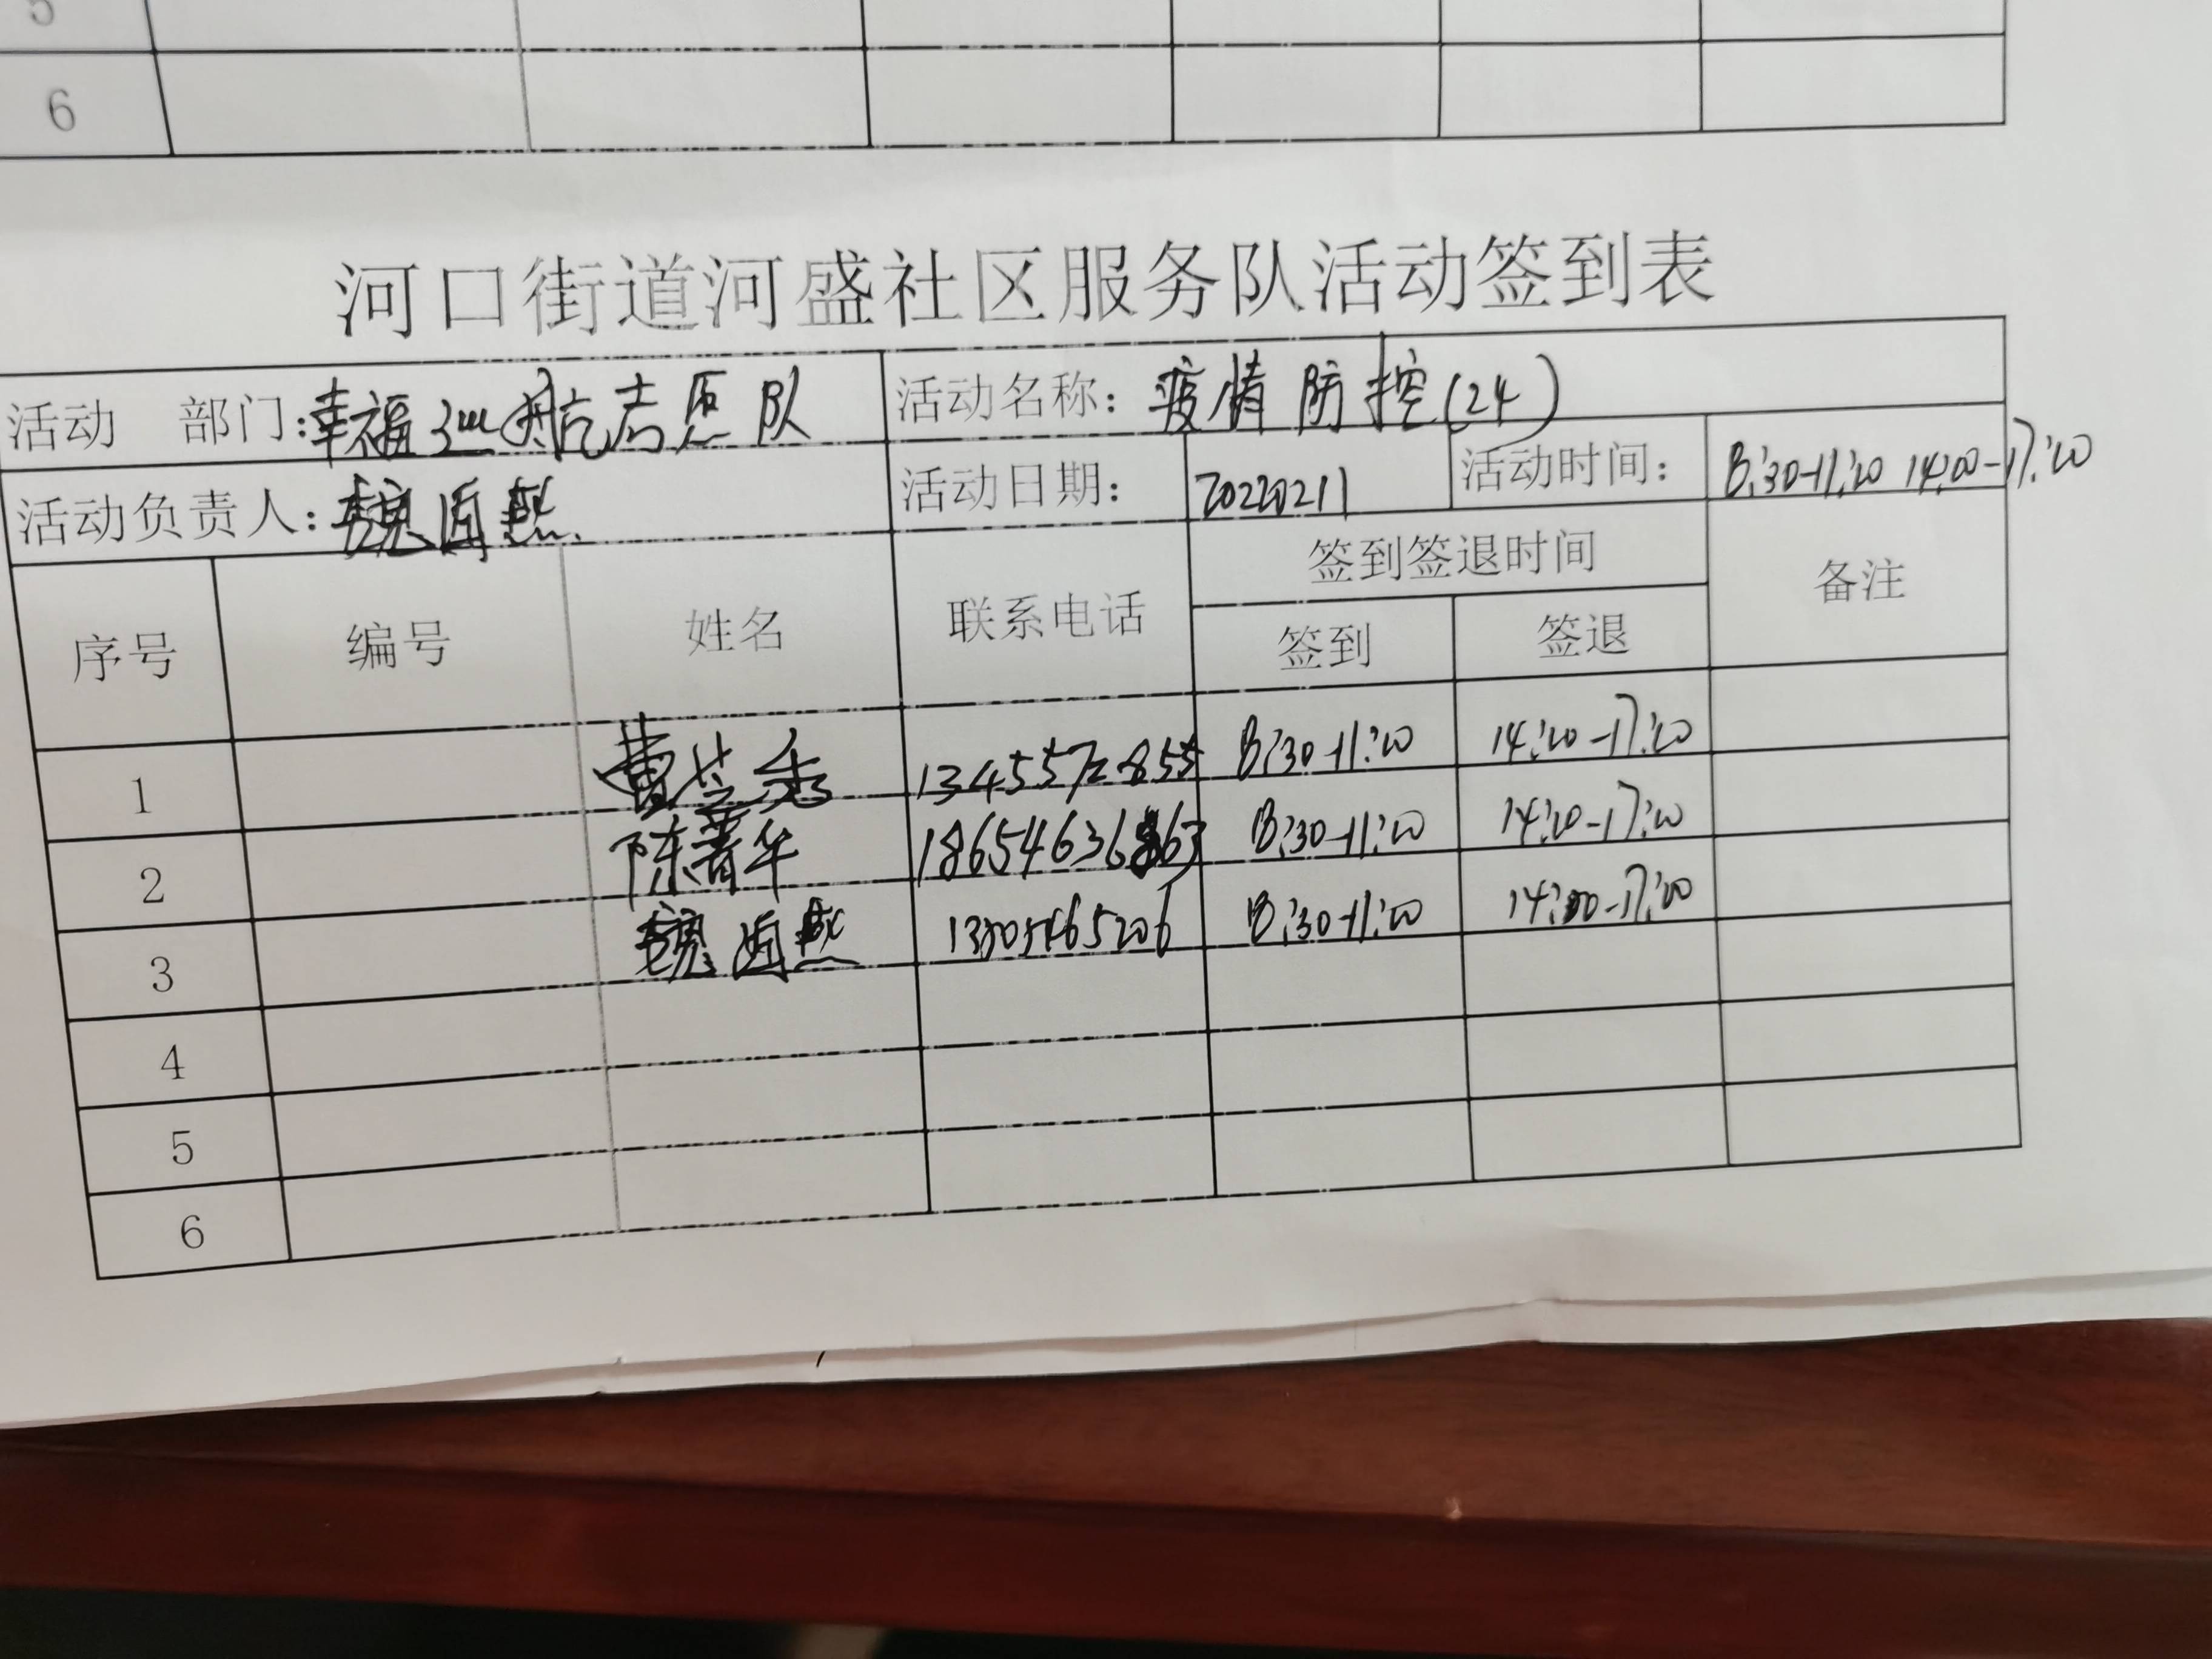 5
6
河口街道河盛社区服务队活动签到表
活动 部门:幸福巡航志愿队 活动名称:疫情防控(24)
活动负责人: 活动日期: 20220211 活动时间: 8:30-11:20 14:00-17:20
序号 编号 姓名 联系电话 签到签退时间 备注
签到 签退
1 曹芝秀 13455572855 8:30-11:20 14:20-17:20
2 陈菁华 8:30-11:20 14:20-17:20
3 13305465206 8:30-11:20 14:00-17:20
4
5
6